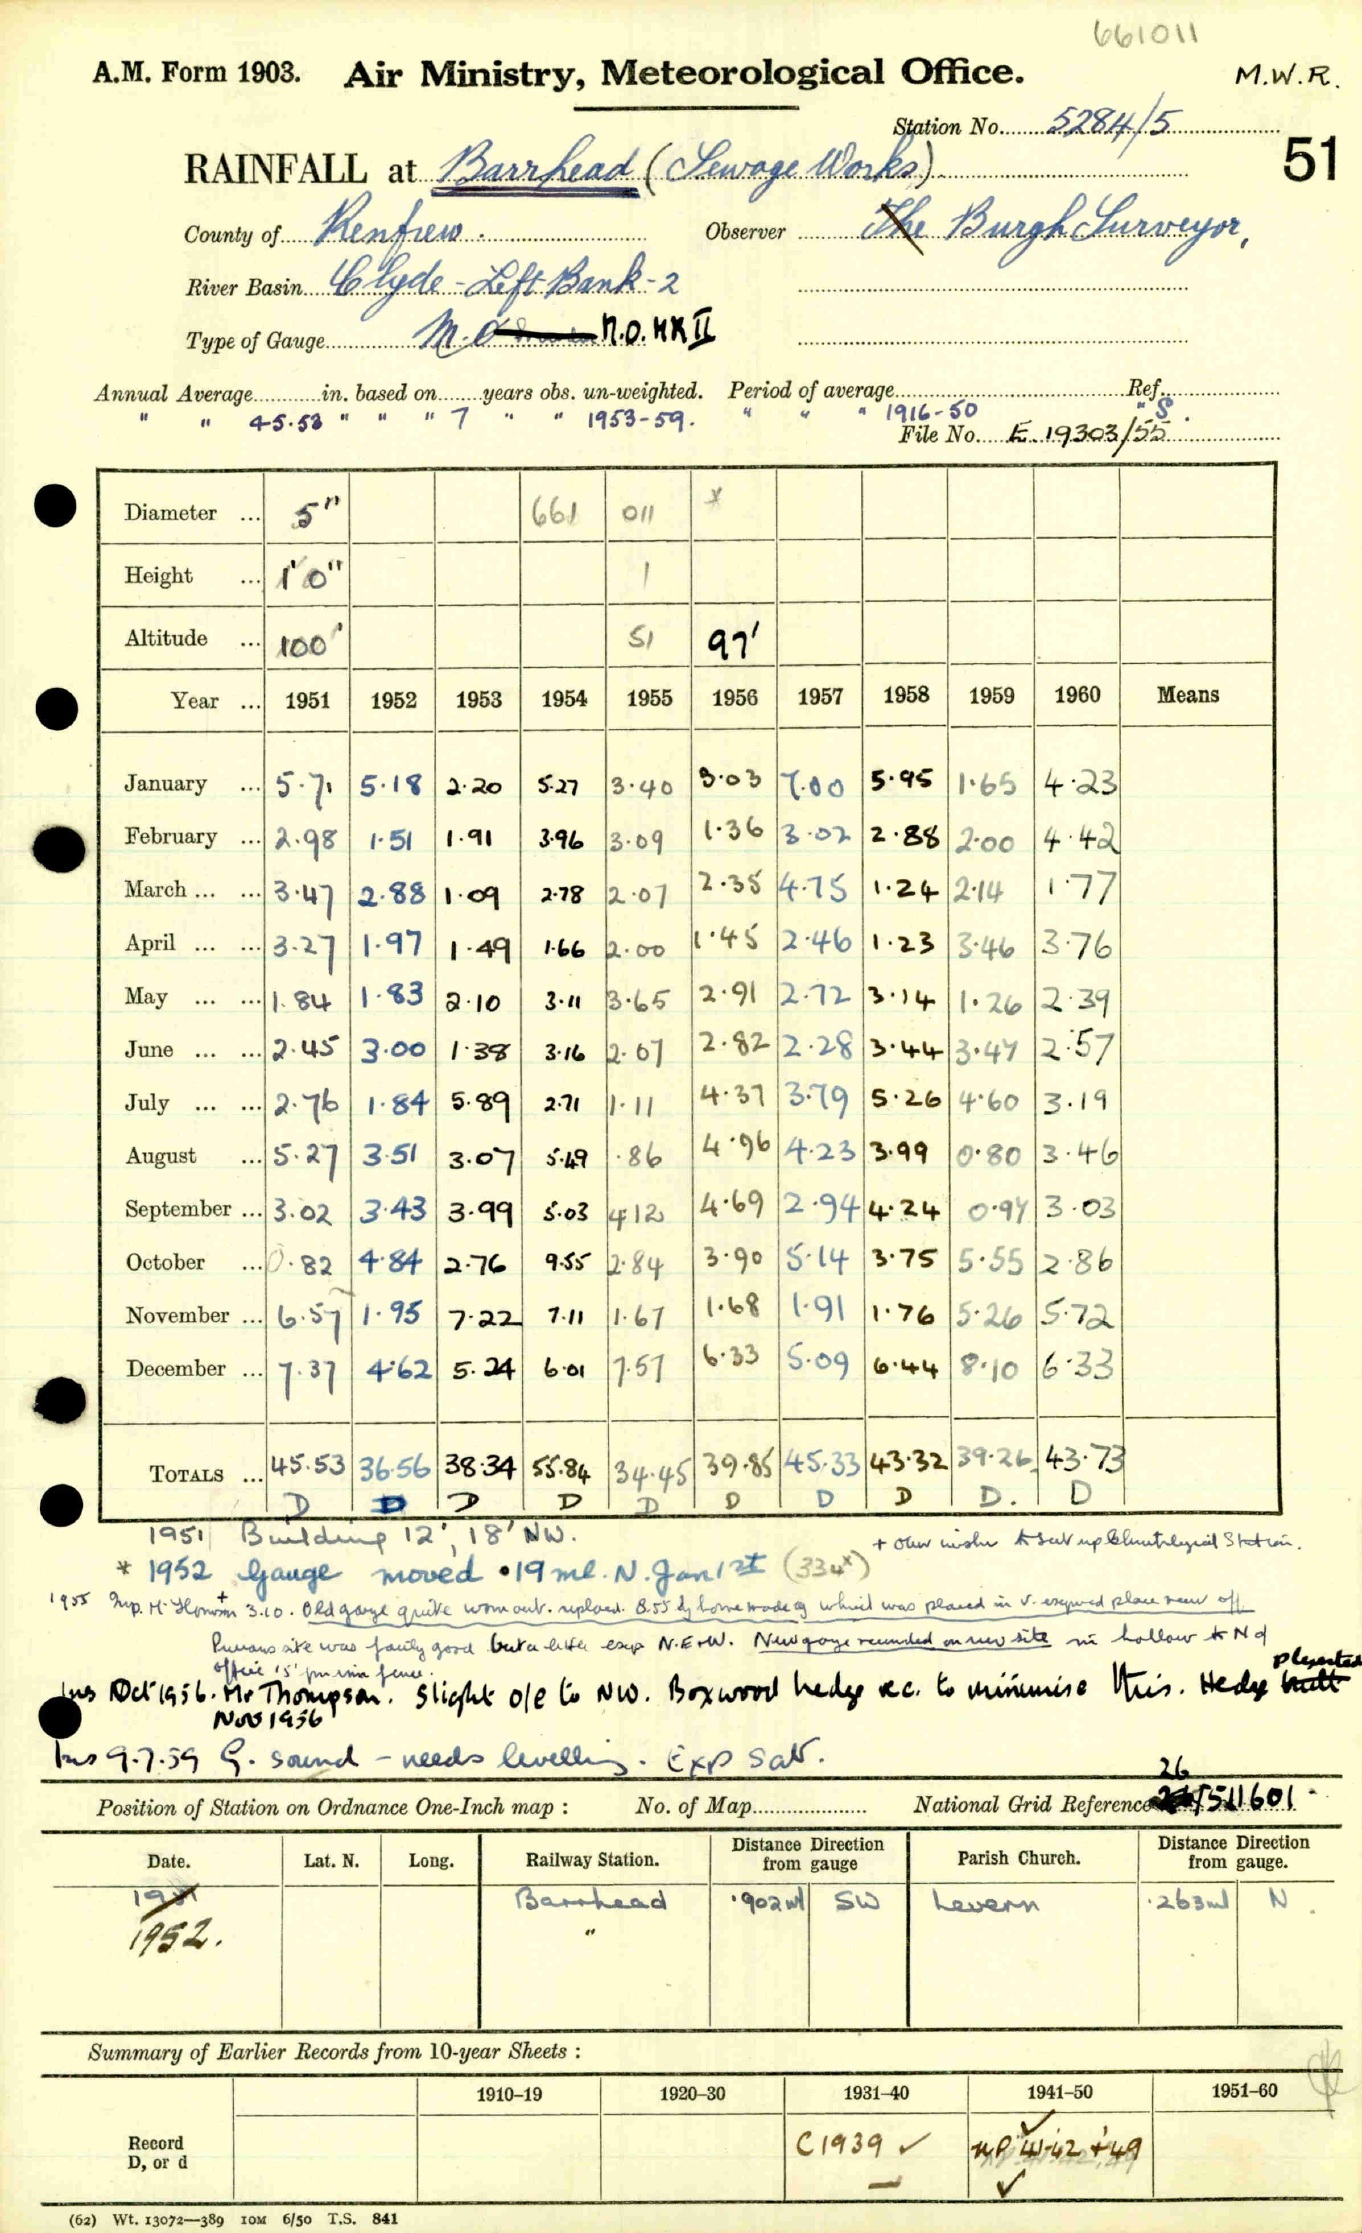 661011
A.M. Form 1903. Air Ministry, Meteorological Office. M.W.R.
Station No. 5284/5
51
RAINFALL at Barrhead (Sewage Works)
County of Renfrew. Observer The Burgh Surveyor,
River Basin Clyde - Left Bank - 2
Type of Gauge M.O. M.O. MK II
Annual Average in. based on years obs. un-weighted. Period of average Ref.
" " 45.53 " " " 7 " " 1953-59. " " " 1916-50 " S.
File No. E. 19303/55
Diameter ... 5" 661 011 *
Height ... 1'0" 1
Altitude ... 100' 51 97'
Year ... 1951 1952 1953 1954 1955 1956 1957 1958 1959 1960 Means
January ... 5.71 5.18 2.20 5.27 3.40 3.03 7.00 5.95 1.65 4.23
February ... 2.98 1.51 1.91 3.96 3.09 1.36 3.02 2.88 2.00 4.42
March ... ... 3.47 2.88 1.09 2.78 2.07 2.35 4.75 1.24 2.14 1.77
April ... ... 3.27 1.97 1.49 1.66 2.00 1.45 2.46 1.23 3.46 3.76
May ... ... 1.84 1.83 2.10 3.11 3.65 2.91 2.72 3.14 1.26 2.39
June ... ... 2.45 3.00 1.38 3.16 2.07 2.82 2.28 3.44 3.47 2.57
July ... ... 2.76 1.84 5.89 2.71 1.11 4.37 3.79 5.26 4.60 3.19
August ... 5.27 3.51 3.07 5.49 .86 4.96 4.23 3.99 0.80 3.46
September ... 3.02 3.43 3.99 5.03 4.12 4.69 2.94 4.24 0.97 3.03
October ... 0.82 4.84 2.76 9.55 2.84 3.90 5.14 3.75 5.55 2.86
November ... 6.57 1.95 7.22 7.11 1.67 1.68 1.91 1.76 5.26 5.72
December ... 7.37 4.62 5.24 6.01 7.57 6.33 5.09 6.44 8.10 6.33
TOTALS ... 45.53 36.56 38.34 55.84 34.45 39.85 45.33 43.32 39.26 43.73
D D D D D D D D D. D
1951 Building 12', 18' NW.
+ to set up Climatological Station.
* 1952 Gauge moved .19 ml. N. Jan 1st (334x)
1955 Insp. Mr 3.10. Old gauge quite worn out. replaced 8.55 by home made g which was placed in v. exposed place near off
Previous site was fairly good but a little exp N.E & W. New gauge on new site in hollow to N of
office 15'
Ins Oct 1956. Mr Thompson. Slight o/e to NW. Boxwood hedge rec. to minimise this. Hedge planted
Nov 1956
Ins 9.7.59 G. sound - needs levelling. Exp Sat.
Position of Station on Ordnance One-Inch map : No. of Map National Grid Reference 26/511601
Date. Lat. N. Long. Railway Station. Distance from gauge Direction Parish Church. Distance from gauge. Direction
1951 Barrhead .902 ml SW Levern .263 ml N.
1952. "
Summary of Earlier Records from 10-year Sheets :
1910–19 1920–30 1931–40 1941–50 1951–60
Record D, or d C1939 ✓ 41-42 + 49 ✓
(62) Wt. 13072—389 10M 6/50 T.S. 841